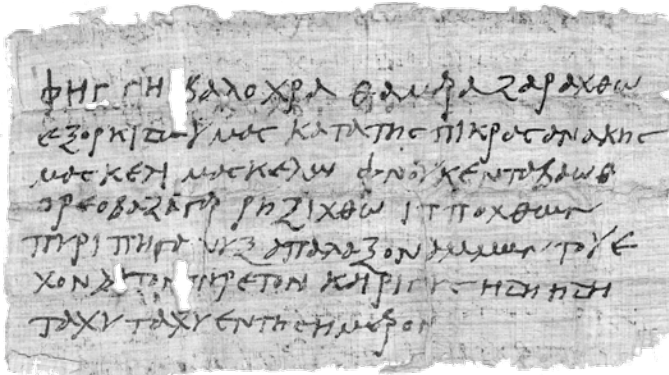 βαλοχρα θαμρα ζαραχθω
εξορκιζω υμας κατα της πικρας ανακης
μασκελι μασκελλω φνουκενταβαωθ
ορεοβαζαγρα ρηξιχθων ιπποχθων
πυριπηγανυξ απαλαξον αμμων τον ε
χοντα τον πυρετον και ριγος ηδη ηδη
ταχυ ταχυ εν τη σημερον